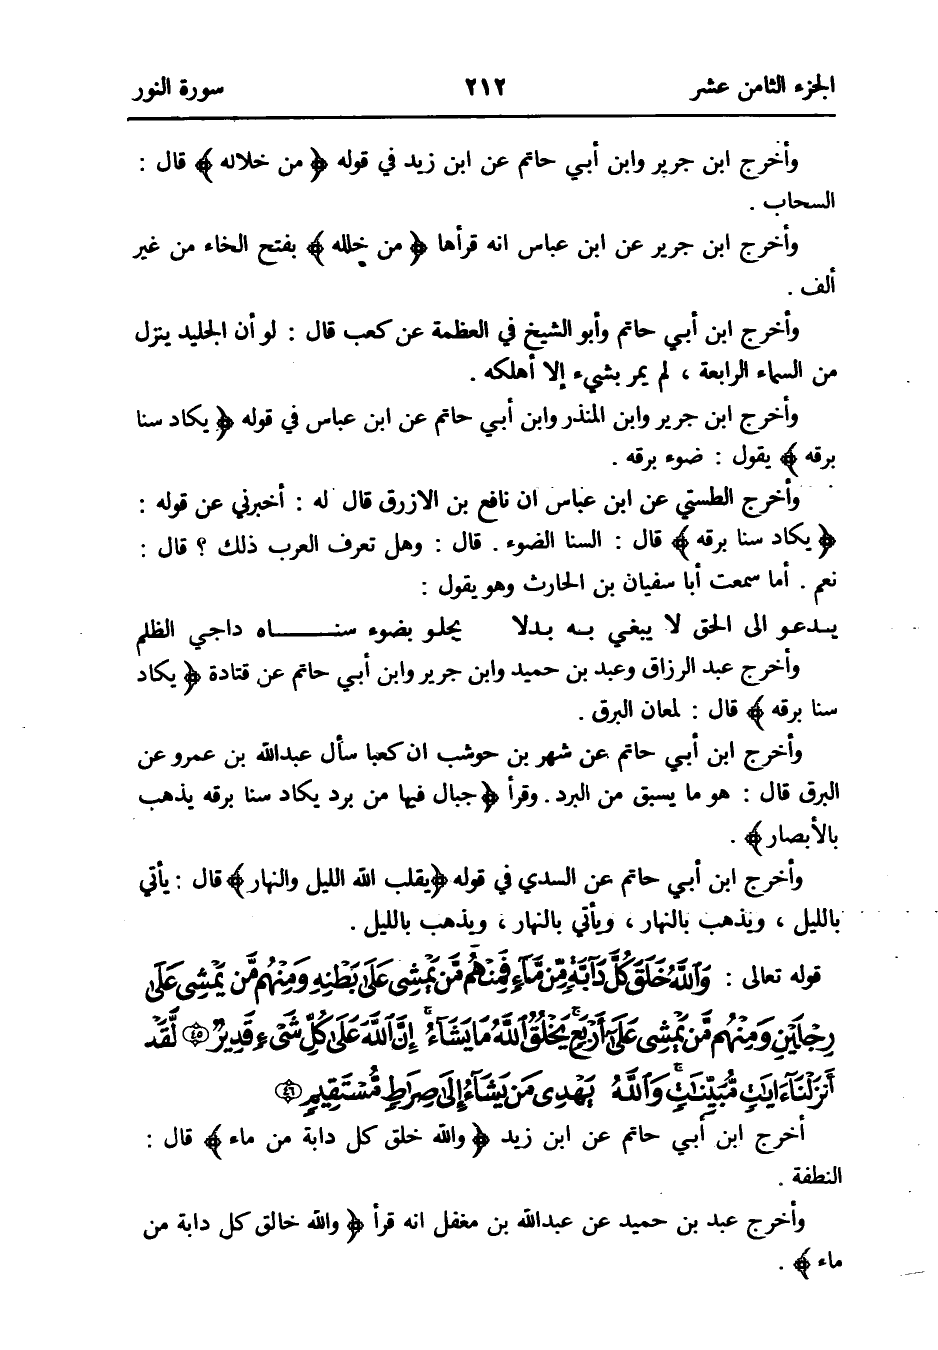 الجزء الثامن عشر ٢١٢ سورة النور
وأخرج ابن جرير وابن أبي حاتم عن ابن زيد في قوله ﴿ من خلاله ﴾ قال :
السحاب .
وأخرج ابن جرير عن ابن عباس انه قرأها ﴿ من خلله ﴾ بفتح الخاء من غير
ألف .
وأخرج ابن أبي حاتم وأبو الشيخ في العظمة عن كعب قال : لو أن الجليد ينزل
من السماء الرابعة ، لم يمر بشيء إلا أهلكه .
وأخرج ابن جرير وابن المنذر وابن أبي حاتم عن ابن عباس في قوله ﴿ يكاد سنا
برقه ﴾ يقول : ضوء برقه .
وأخرج الطستي عن ابن عباس ان نافع بن الازرق قال له : أخبرني عن قوله :
﴿ يكاد سنا برقه ﴾ قال : السنا الضوء . قال : وهل تعرف العرب ذلك ؟ قال :
نعم . أما سمعت أبا سفيان بن الحارث وهو يقول :
يدعو الى الحق لا يبغي به بدلا يجلو بضوء سناه داجي الظلم
وأخرج عبد الرزاق وعبد بن حميد وابن جرير وابن أبي حاتم عن قتادة ﴿ يكاد
سنا برقه ﴾ قال : لمعان البرق .
وأخرج ابن أبي حاتم عن شهر بن حوشب ان كعبا سأل عبدالله بن عمرو عن
البرق قال : هو ما يسبق من البرد . وقرأ ﴿ جبال فيها من برد يكاد سنا برقه يذهب
بالأبصار ﴾ .
وأخرج ابن أبي حاتم عن السدي في قوله ﴿يقلب الله الليل والنهار﴾ قال : يأتي
بالليل ، ويذهب بالنهار ، ويأتي بالنهار ، ويذهب بالليل .
قوله تعالى : وَٱللَّهُ خَلَقَ كُلَّ دَآبَّةٍ مِّن مَّآءٍ فَمِنْهُم مَّن يَمْشِى عَلَىٰ بَطْنِهِۦ وَمِنْهُم مَّن يَمْشِى عَلَىٰ
رِجْلَيْنِ وَمِنْهُم مَّن يَمْشِى عَلَىٰٓ أَرْبَعٍ ۚ يَخْلُقُ ٱللَّهُ مَا يَشَآءُ ۚ إِنَّ ٱللَّهَ عَلَىٰ كُلِّ شَىْءٍ قَدِيرٌ ﴿٤٥﴾ لَّقَدْ
أَنزَلْنَآ ءَايَٰتٍ مُّبَيِّنَٰتٍ ۚ وَٱللَّهُ يَهْدِى مَن يَشَآءُ إِلَىٰ صِرَٰطٍ مُّسْتَقِيمٍ ﴿٤٦﴾
أخرج ابن أبي حاتم عن ابن زيد ﴿ والله خلق كل دابة من ماء ﴾ قال :
النطفة .
وأخرج عبد بن حميد عن عبدالله بن مغفل انه قرأ ﴿ والله خالق كل دابة من
ماء ﴾ .